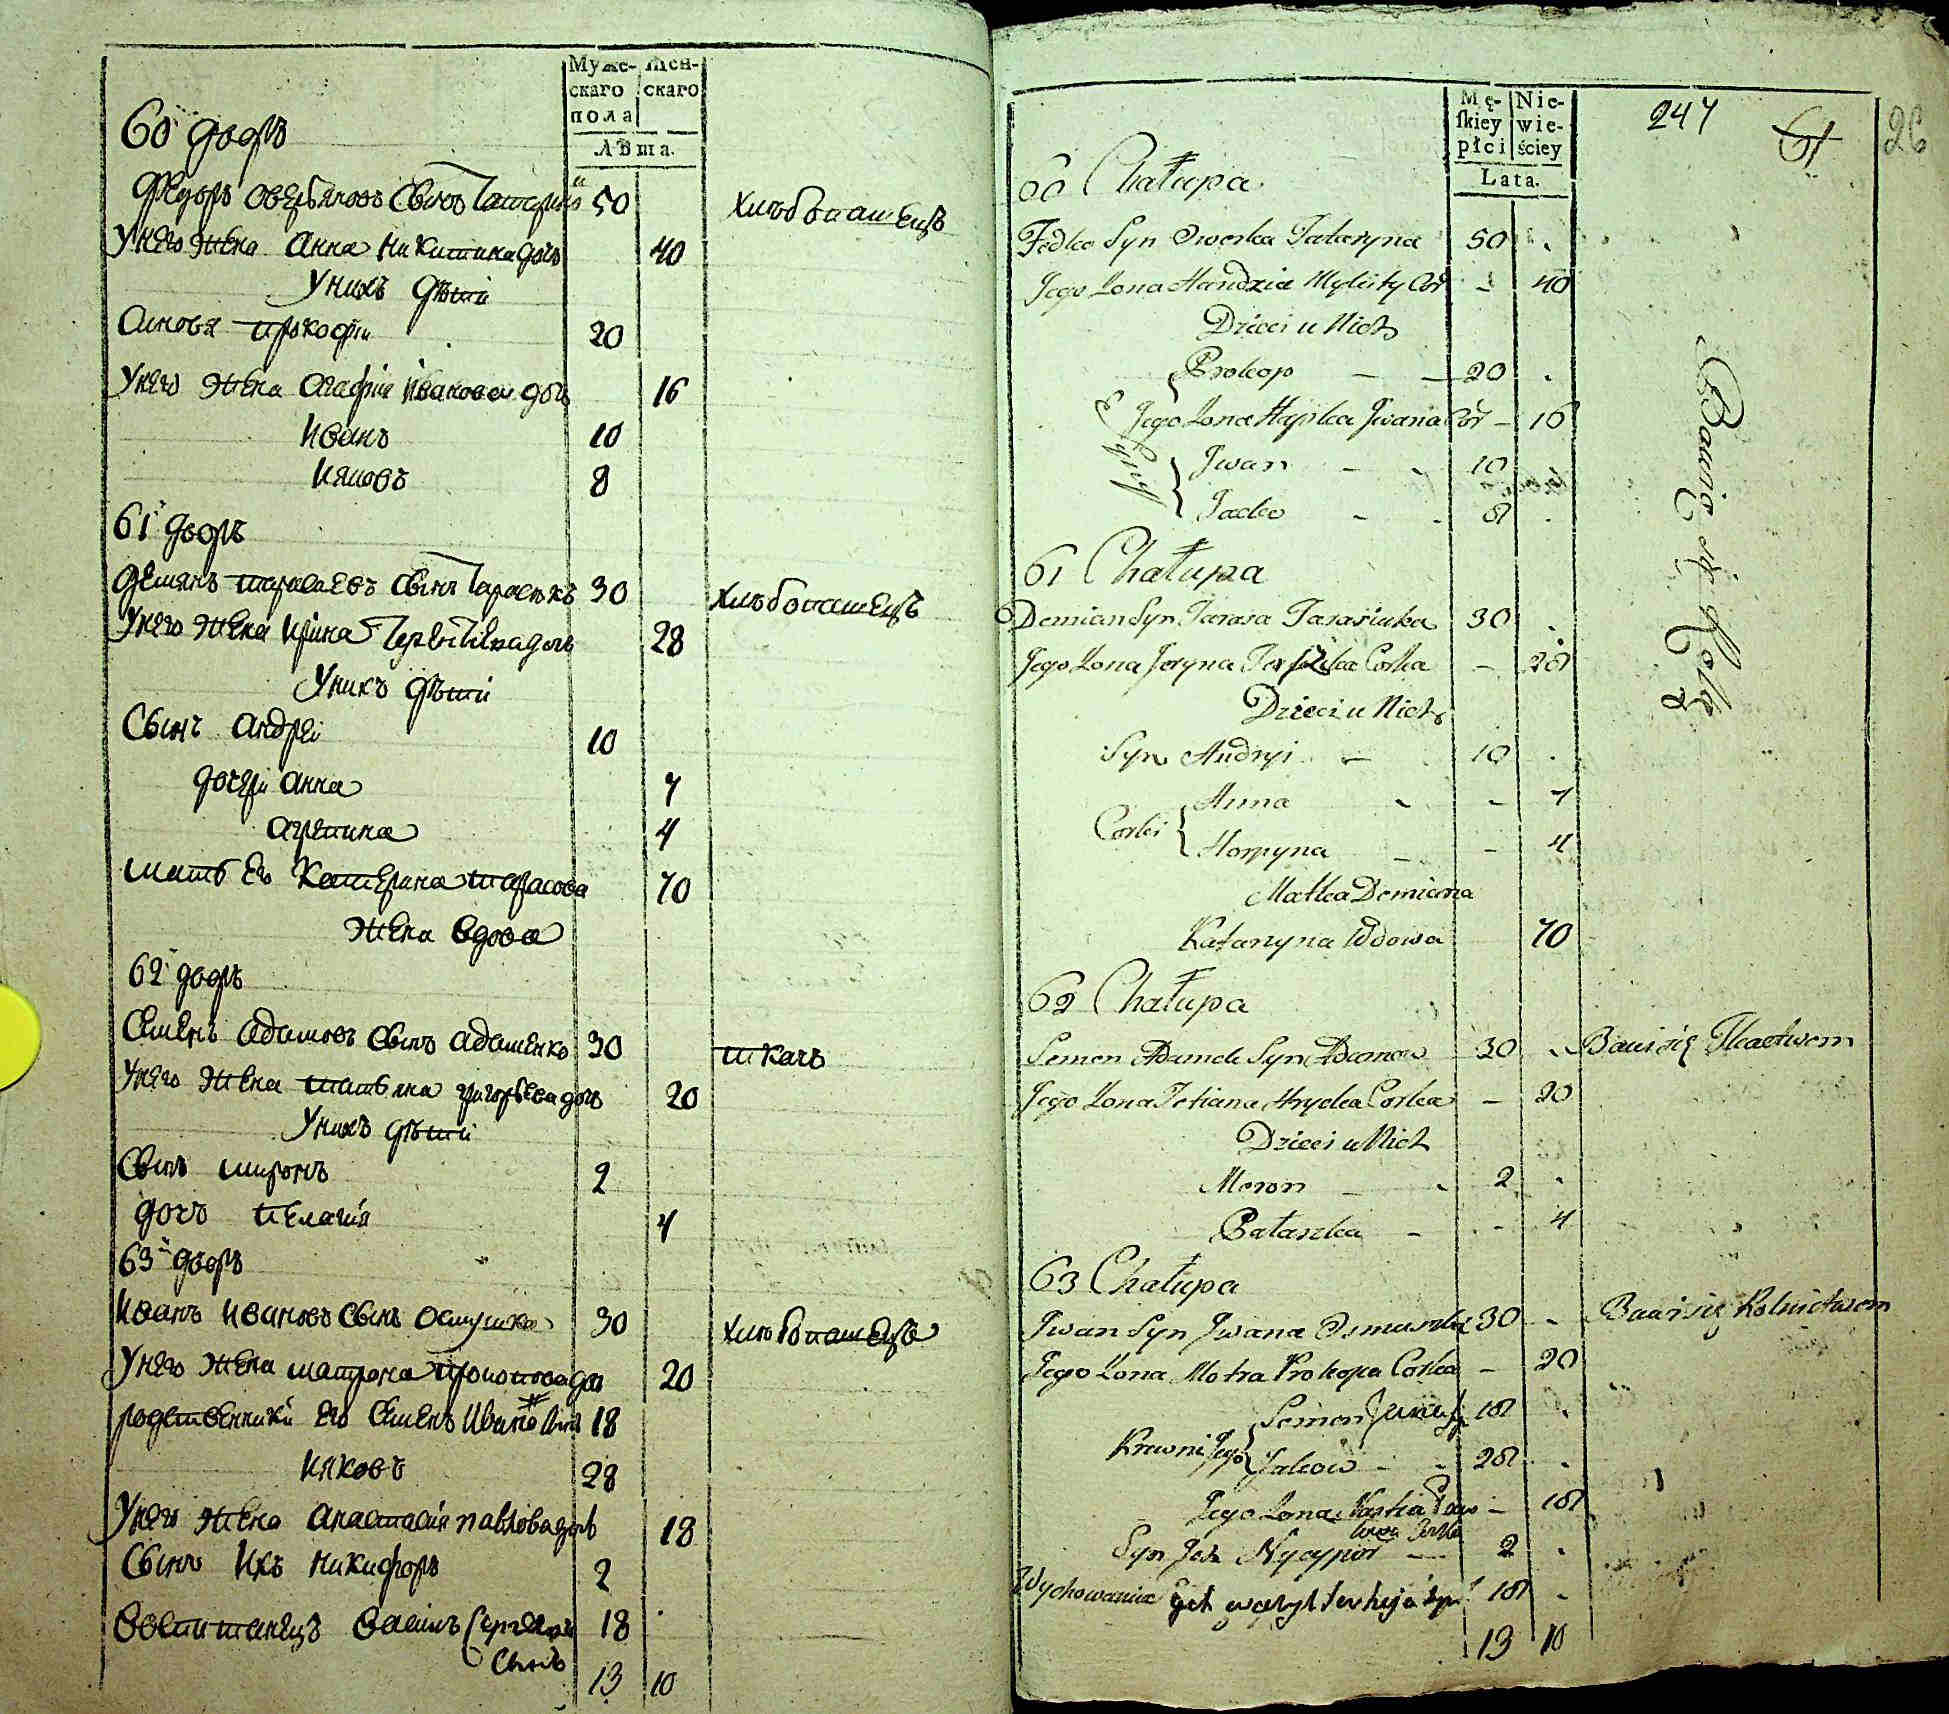 Муже-
скаго
пола
Жен-
скаго
Лѣта.
60й дворъ
Федоръ Оверьяновъ сынъ Татаринъ 50 хлѣбопашецъ
У него жена Анна Никитина дочь 40
У нихъ дѣти
Сыновя Прокофiй 20
У него жена Агафия Иванова дочь 16
Иванъ 10
Ияковъ 8
61й дворъ
Демянъ Тарасаевъ сынъ Тарасюкъ 30 хлѣбопашецъ
У него жена Ирина дочь 28
У нихъ дѣти
Сынъ Андрей 10
дочери Анна 7
Агрепина 4
Мать его Катерина Тарасова 70
жена вдова
62й дворъ
Семенъ Адамовъ сынъ Адаменко 30 ткачъ
У него жена Татьяна Григорьева дочь 20
У нихъ дѣти
Сынъ Миронъ 2
дочь Пелагия 4
63й дворъ
Иванъ Ивановъ сынъ Осмушка 30 хлѣбопашецъ
У него жена Матрона Прокопова дочь 20
родственники его Семенъ 18
Ияковъ 28
У него жена Анастасия Павлова дочь 18
Сынъ ихъ Никифоръ 2
Воспитанецъ Василь Сергеевъ 18
Сынъ
13 10
Mę-
ſkiey
płci
Nie-
wie-
ściey
Lata.
247
61
26
60 Chałupa
Fedko Syn Owerka Tataryna 50
Jego Żona Handzia Mykity Cór 40
Dzieci u Nich
Prokop 20
Jego Żona Hapka Jwana Cór 16
Syny
Jwan 10
Jacko 8
Bawią się Rolą
61 Chałupa
Demian Syn Tarasa Tarasiuka 30
Jego Żona Jeryna Corka 28
Dzieci u Nich
Syn Andryi 10
Corki
Anna 7
Horpyna 4
Matka Demiana
Katarzyna Wdowa 70
62 Chałupa
Semen Adamek Syn Adamow 30 Bawi się Tkactwem
Jego Żona Tetiana Hrycka Corka 20
Dzieci u Nich
Moron 2
Pałaszka 4
63 Chałupa
Jwan Syn Jwana Osmuszka 30 Bawi się Rolnictwem
Jego Żona Motra Prokopa Corka 20
Krewni Jego
Semen 18
Jakow 28
Jego Żona Nastia 18
Corka
Syn Jch Nyczypor 2
Wychowaniec 18
13 10